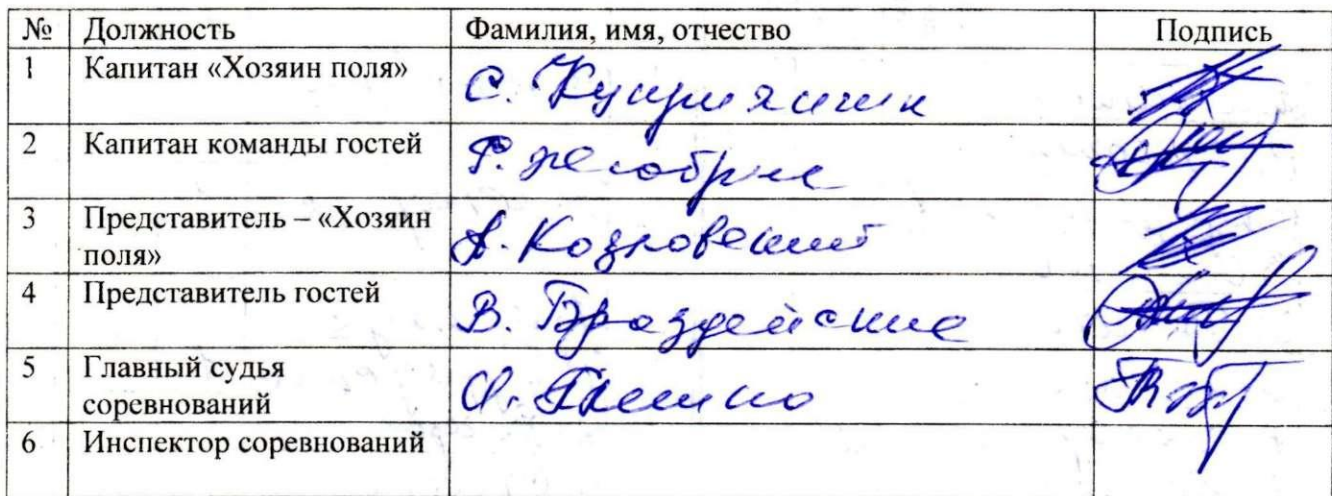 № Должность Фамилия, имя, отчество Подпись
1 Капитан «Хозяин поля» С.
2 Капитан команды гостей Р.
3 Представитель – «Хозяин А. Козловский
поля»
4 Представитель гостей В.
5 Главный судья
соревнований
6 Инспектор соревнований